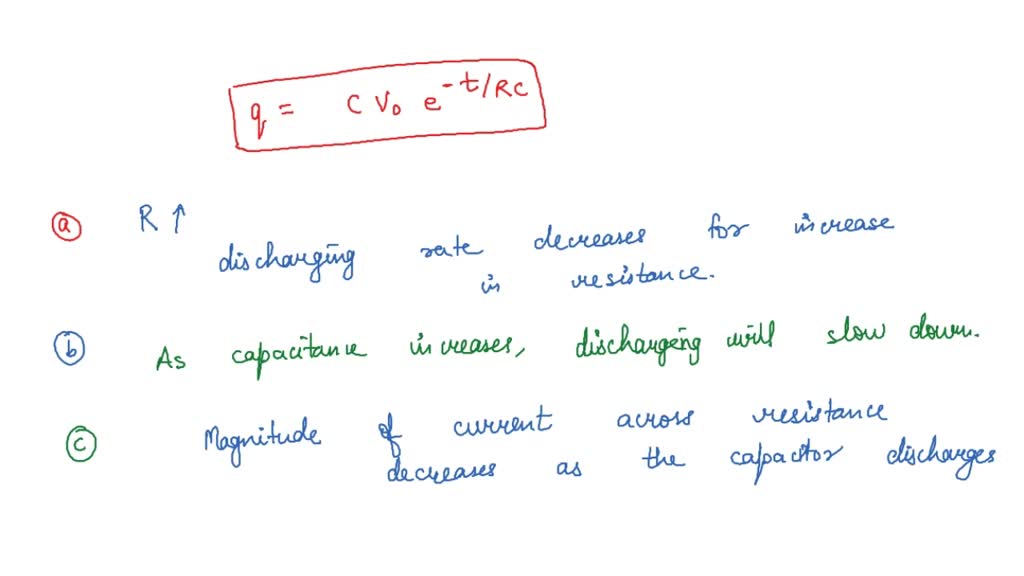 q = C V₀ e^{-t/RC}
(a) R ↑
discharging rate decreases for increase
in resistance.
(b) As capacitance increases, discharging will slow down.
(c) Magnitude of current across resistance
decreases as the capacitor discharges